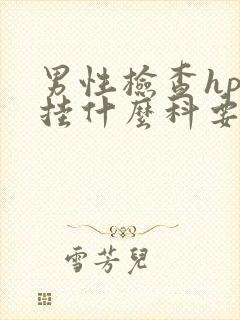 男性檢查hp
挂什麼科要
雪芳兒